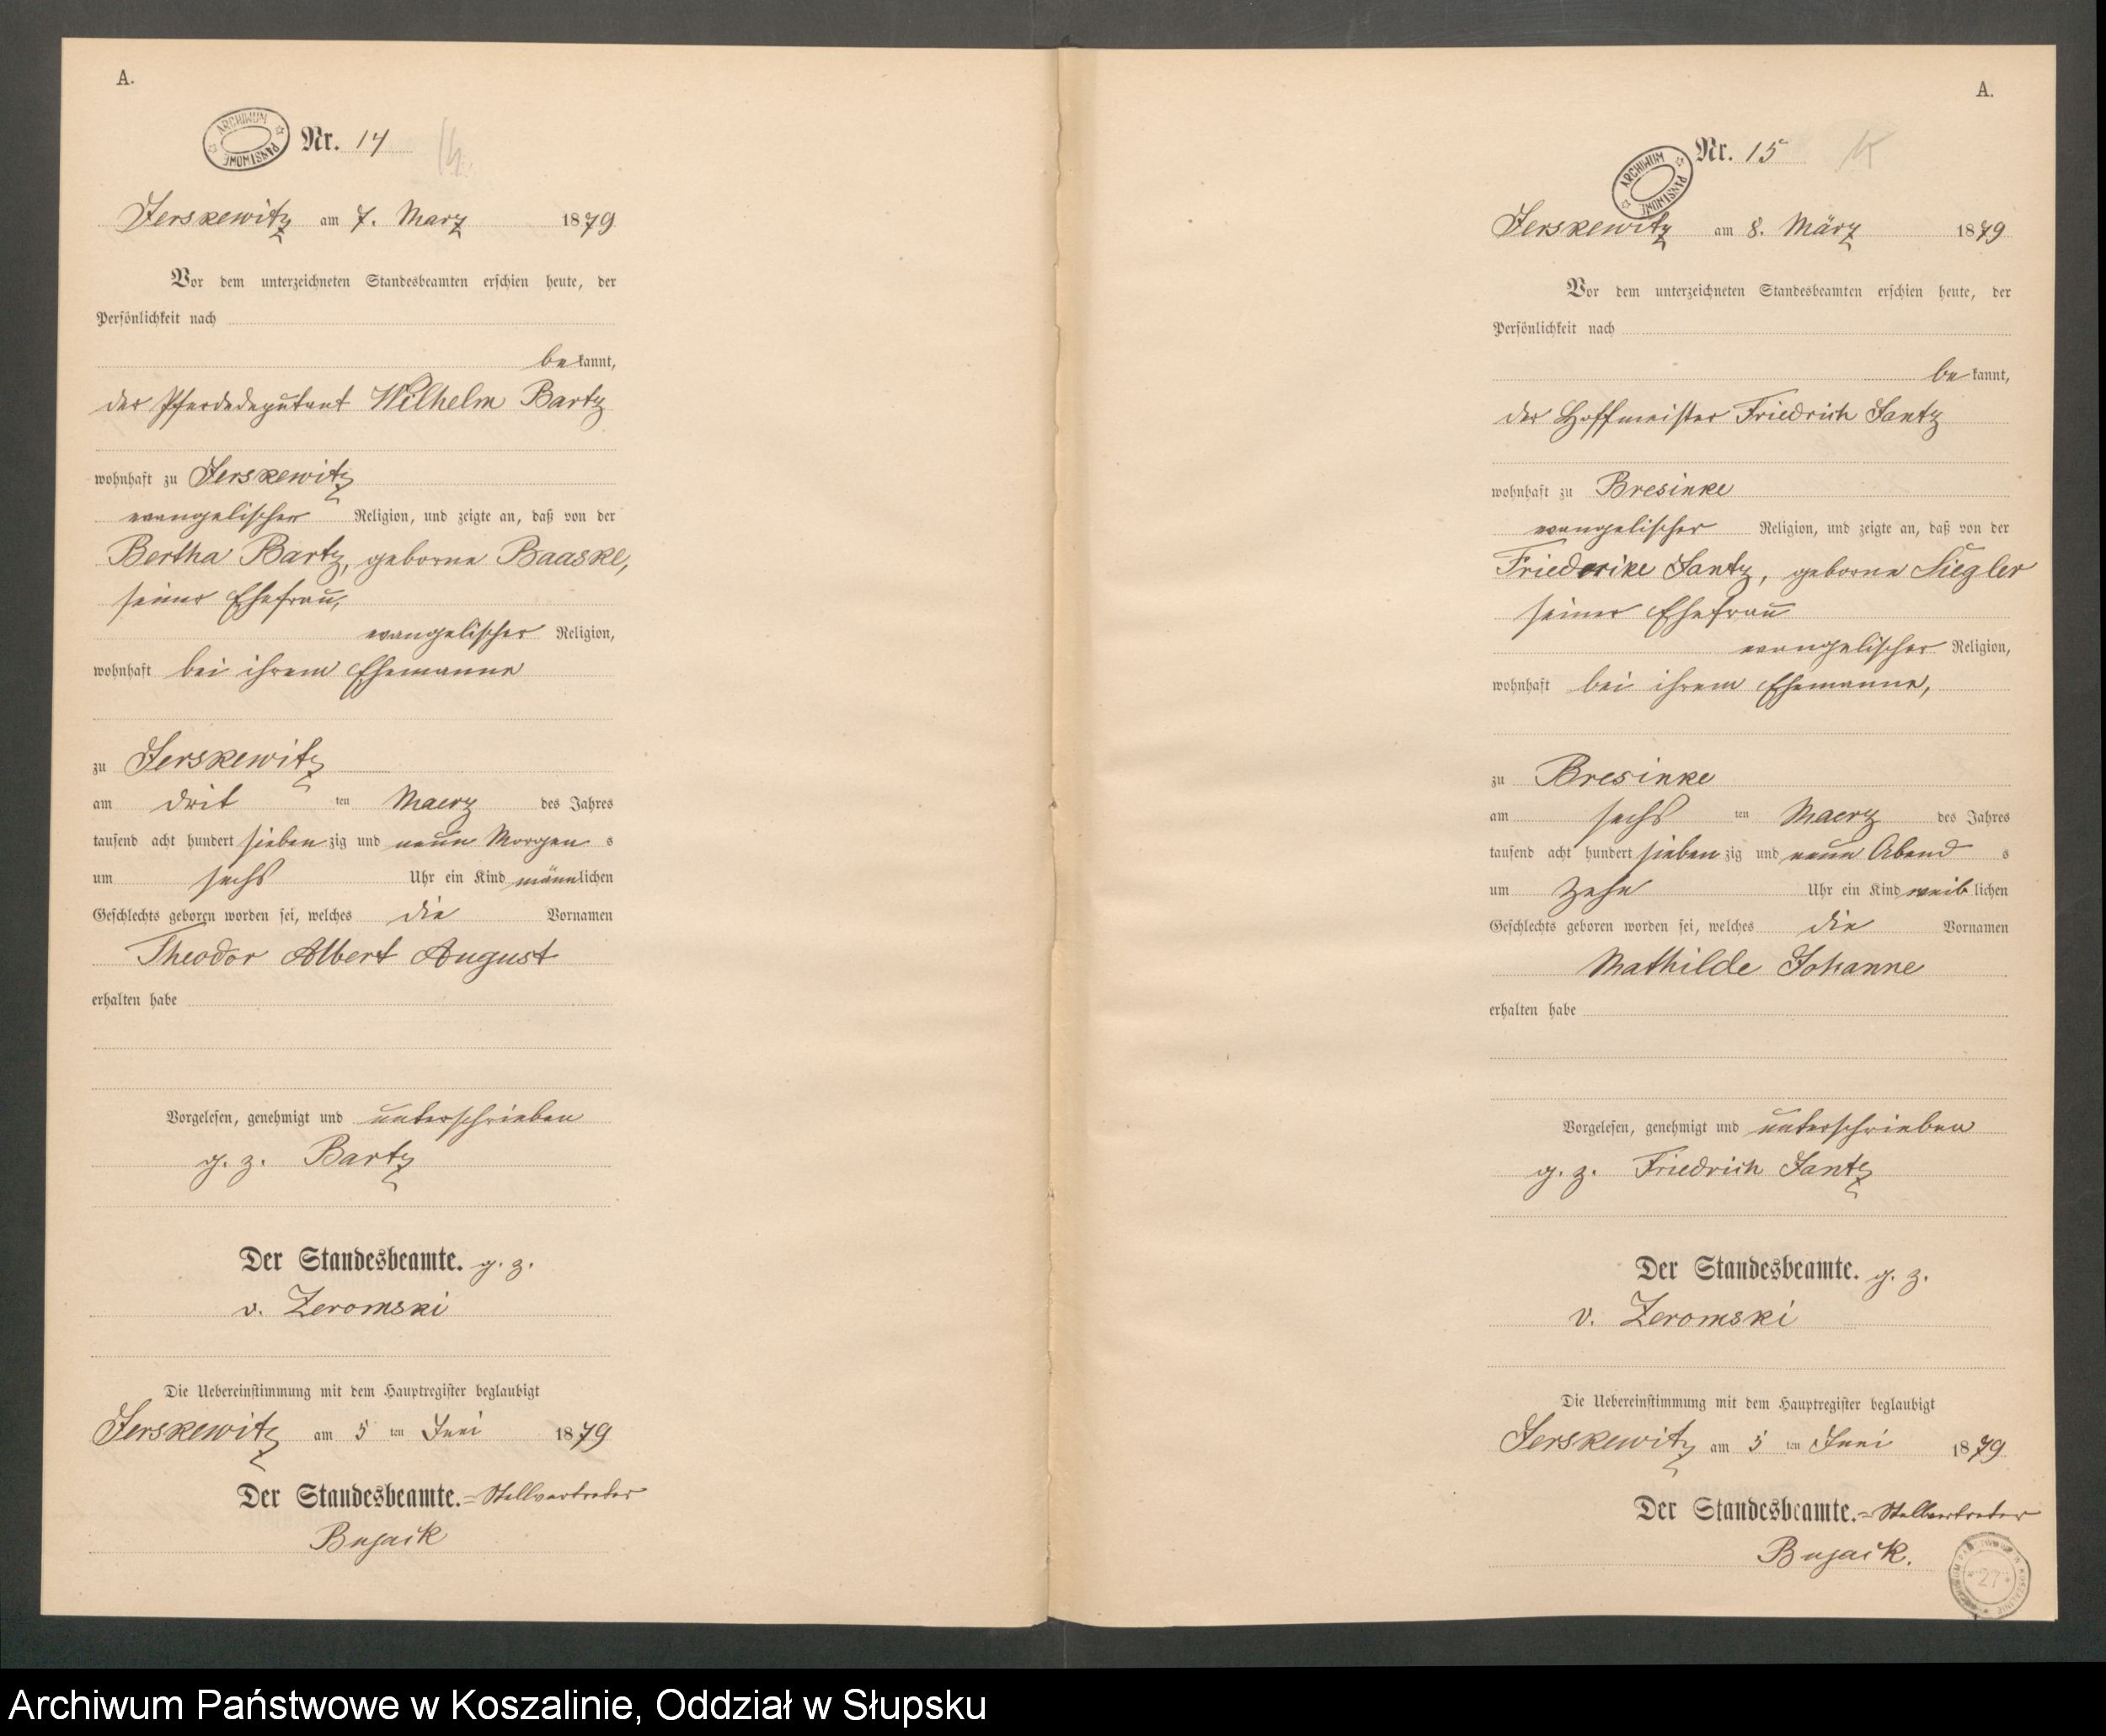 A.
ARCHIWUM PAŃSTWOWE
Nr. 14
14.
Jerskewitz am 7. Marz 1879
Vor dem unterzeichneten Standesbeamten erschien heute, der
Persönlichkeit nach
be kannt,
der Pferdedeputant Wilhelm Bartz
wohnhaft zu Jerskewitz
evangelischer Religion, und zeigte an, daß von der
Bertha Bartz, geborne Baaske,
seiner Ehefrau,
evangelischer Religion,
wohnhaft bei ihrem Ehemanne
zu Jerskewitz
am drit ten Maerz des Jahres
tausend acht hundert sieben zig und neun Morgen s
um sechs Uhr ein Kind männlichen
Geschlechts geboren worden sei, welches die Vornamen
Theodor Albert August
erhalten habe
Vorgelesen, genehmigt und unterschrieben
g. z. Bartz
Der Standesbeamte. g. z.
v. Zeromski
Die Uebereinstimmung mit dem Hauptregister beglaubigt
Jerskewitz am 5 ten Juni 1879
Der Standesbeamte.=Stellvertreter
Bujack
A.
ARCHIWUM PAŃSTWOWE
Nr. 15
Jerskewitz am 8. März 1879
Vor dem unterzeichneten Standesbeamten erschien heute, der
Persönlichkeit nach
be kannt,
der Hoffmeister Friedrich Jantz
wohnhaft zu Bresinke
evangelischer Religion, und zeigte an, daß von der
Friederike Jantz, geborne Siegler
seiner Ehefrau
evangelischer Religion,
wohnhaft bei ihrem Ehemanne,
zu Bresinke
am sechs ten Maerz des Jahres
tausend acht hundert sieben zig und neun Abend s
um zehn Uhr ein Kind weib lichen
Geschlechts geboren worden sei, welches die Vornamen
Mathilde Johanne
erhalten habe
Vorgelesen, genehmigt und unterschrieben
g. z. Friedrich Jantz
Der Standesbeamte. g. z.
v. Zeromski
Die Uebereinstimmung mit dem Hauptregister beglaubigt
Jerskewitz am 5 ten Juni 1879
Der Standesbeamte.=Stellvertreter
Bujack.
27
Archiwum Państwowe w Koszalinie, Oddział w Słupsku